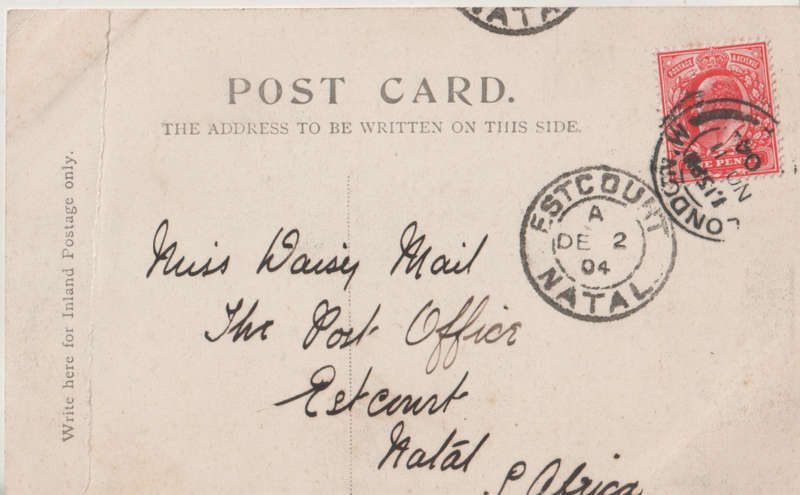 NATAL
POST CARD.
THE ADDRESS TO BE WRITTEN ON THIS SIDE.
Write here for Inland Postage only.
POSTAGE & REVENUE
ONE PENNY
LONDON.W.
NO
04
ESTCOURT
A
DE 2
04
NATAL
Miss Daisy Mail
The Post Office
Estcourt
Natal
S Africa